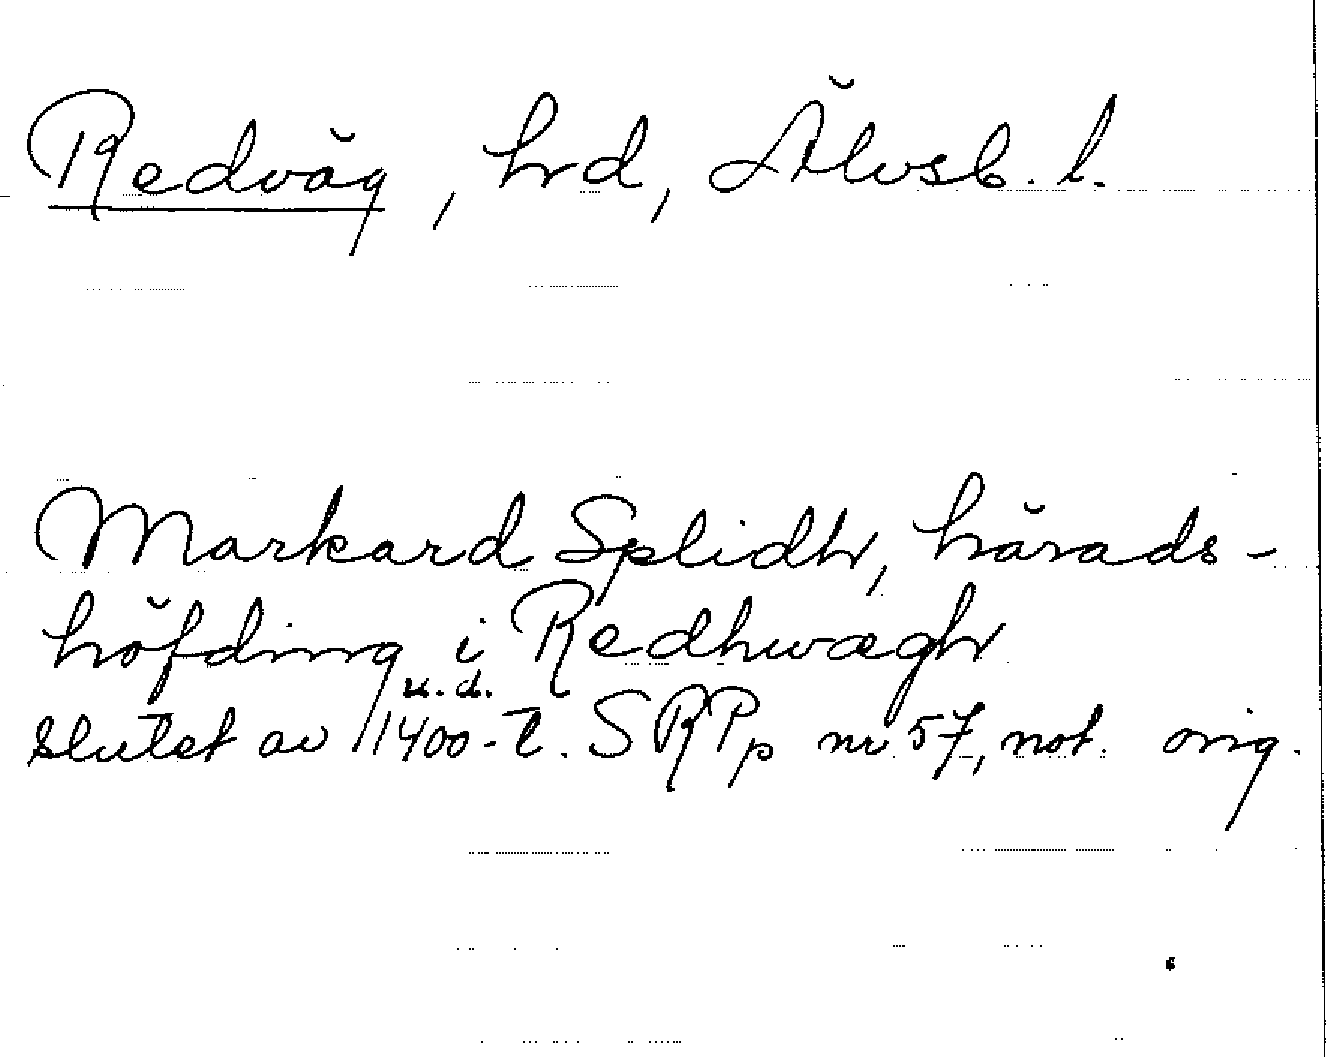 Redväg, hrd, Älvsb. l.
Markard Splidhr, härads-
höfding i Redhwæghr
u.d.
slutet av 1400-t. SRPp nr 57, not. orig.